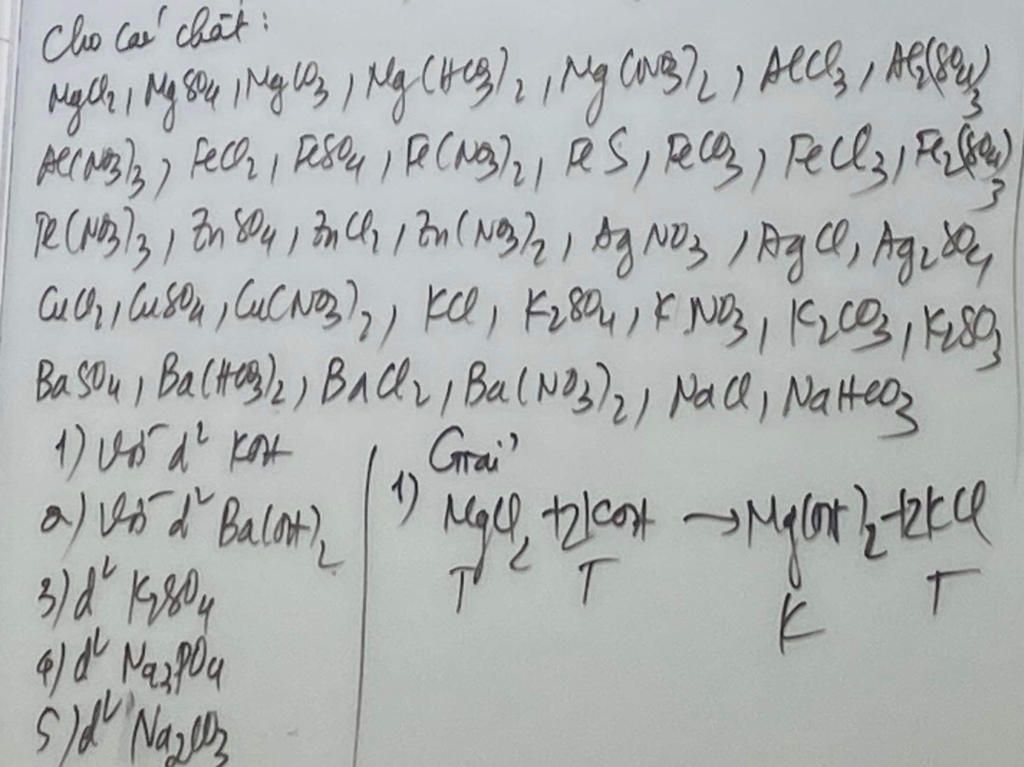 Cho các chất:
MgCl2, MgSO4, MgCO3, Mg(HCO3)2, Mg(NO3)2, AlCl3, Al2(SO4)3
Al(NO3)3, FeCl2, FeSO4, Fe(NO3)2, FeS, FeCO3, FeCl3, Fe2(SO4)3
Fe(NO3)3, ZnSO4, ZnCl2, Zn(NO3)2, AgNO3, AgCl, Ag2SO4
CuCl2, CuSO4, Cu(NO3)2, KCl, K2SO4, KNO3, K2CO3, K2SO3
BaSO4, Ba(HCO3)2, BaCl2, Ba(NO3)2, NaCl, NaHCO3
1) Với d² KOH
2) Với d² Ba(OH)2
3) d² K2SO4
4) d² Na3PO4
5) d² Na2CO3
Giải
1) MgCl2 + 2KOH → Mg(OH)2 + 2KCl
T T K T